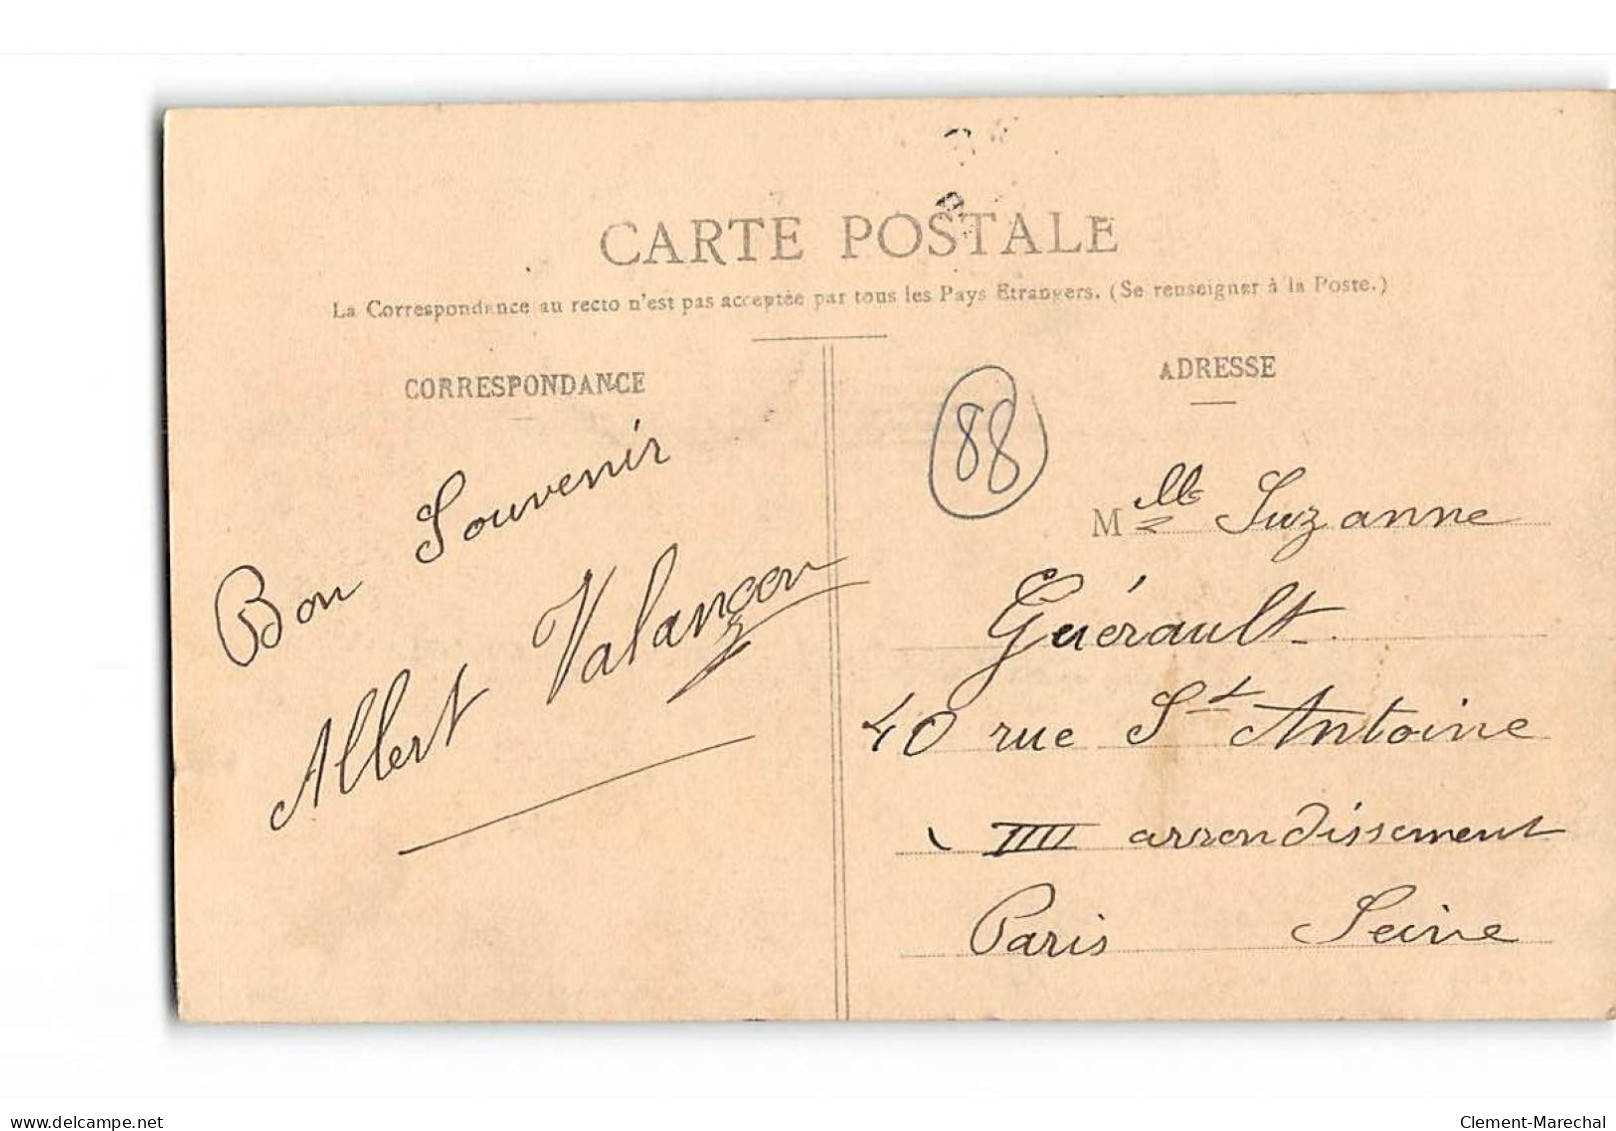 CARTE POSTALE
La Correspondance au recto n'est pas acceptée par tous les Pays Etrangers. (Se renseigner à la Poste.)
CORRESPONDANCE
Bon Souvenir
Albert Valançon
ADRESSE
88
Mlle Suzanne
Guérault
40 rue St Antoine
IIII arrondissement
Paris Seine
delcampe.net
Clement-Marechal